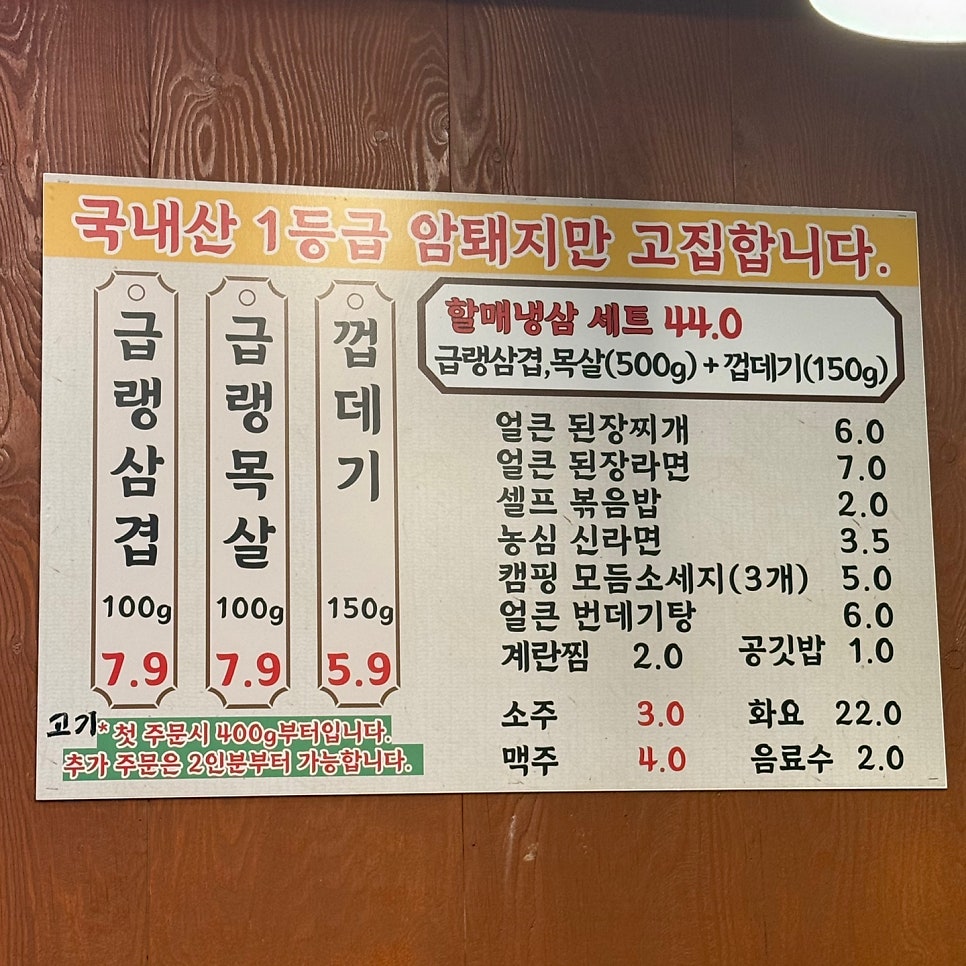 국내산 1등급 암퇘지만 고집합니다.
급랭삼겹
100g
7.9
급랭목살
100g
7.9
껍데기
150g
5.9
고기* 첫 주문시 400g부터입니다.
추가 주문은 2인분부터 가능합니다.
할매냉삼 세트 44.0
급랭삼겹,목살(500g)+껍데기(150g)
얼큰 된장찌개 6.0
얼큰 된장라면 7.0
셀프 볶음밥 2.0
농심 신라면 3.5
캠핑 모듬소세지(3개) 5.0
얼큰 번데기탕 6.0
계란찜 2.0 공깃밥 1.0
소주 3.0 화요 22.0
맥주 4.0 음료수 2.0